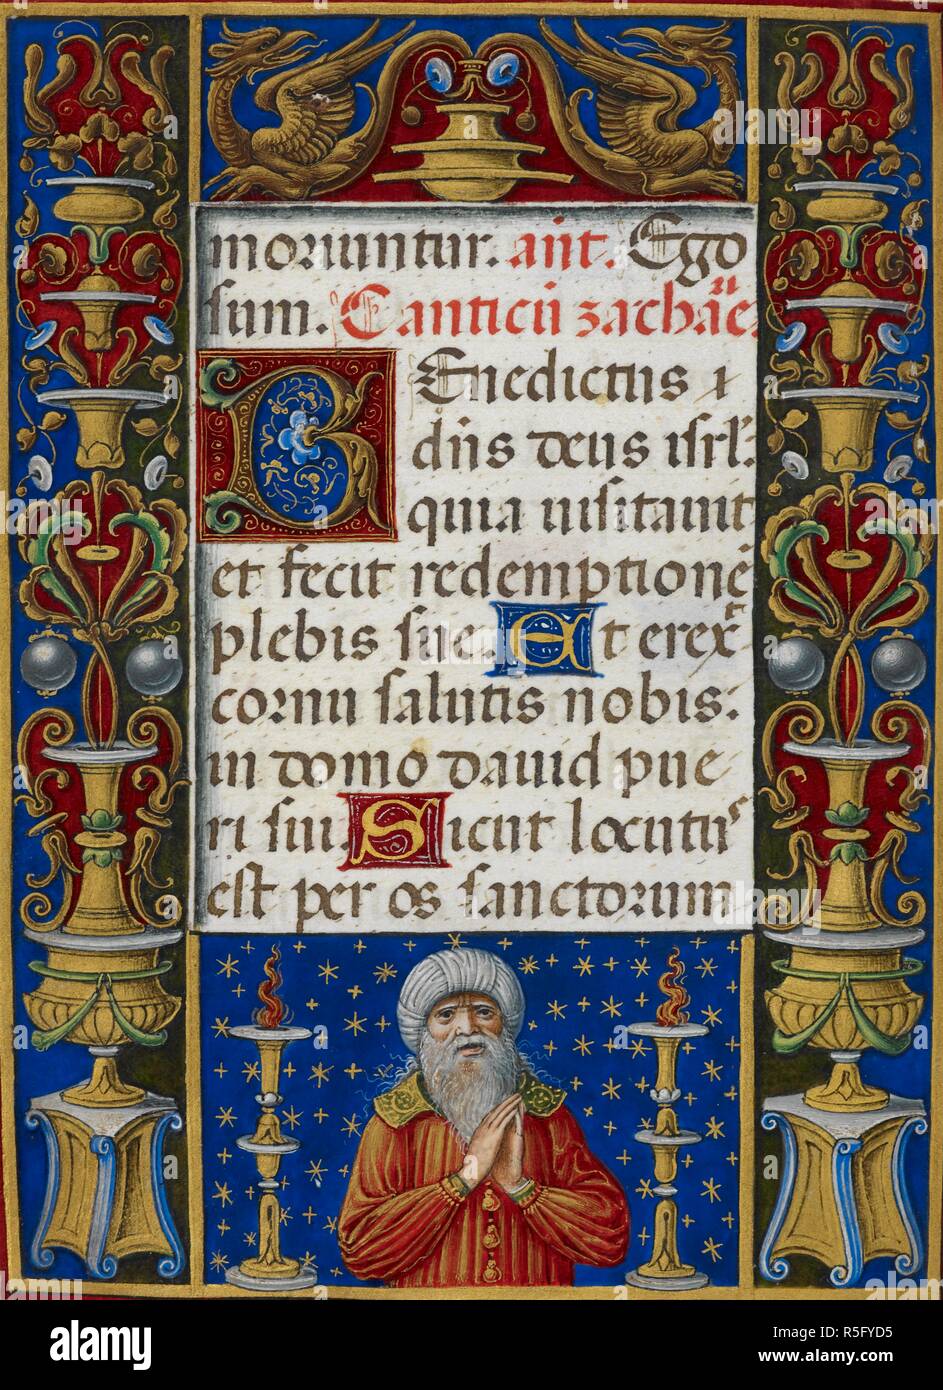 moriuntur. añt. Ego
sum. Canticū zachaře.
Benedictus
dñs deus isrl̓:
quia uisitauit
et fecit redemptionē
plebis sue. Et erex̄
cornu salutis nobis:
in domo dauid pue
ri sui. Sicut locutus
est per os sanctorum
alamy
Image ID: R5FYD5
www.alamy.com